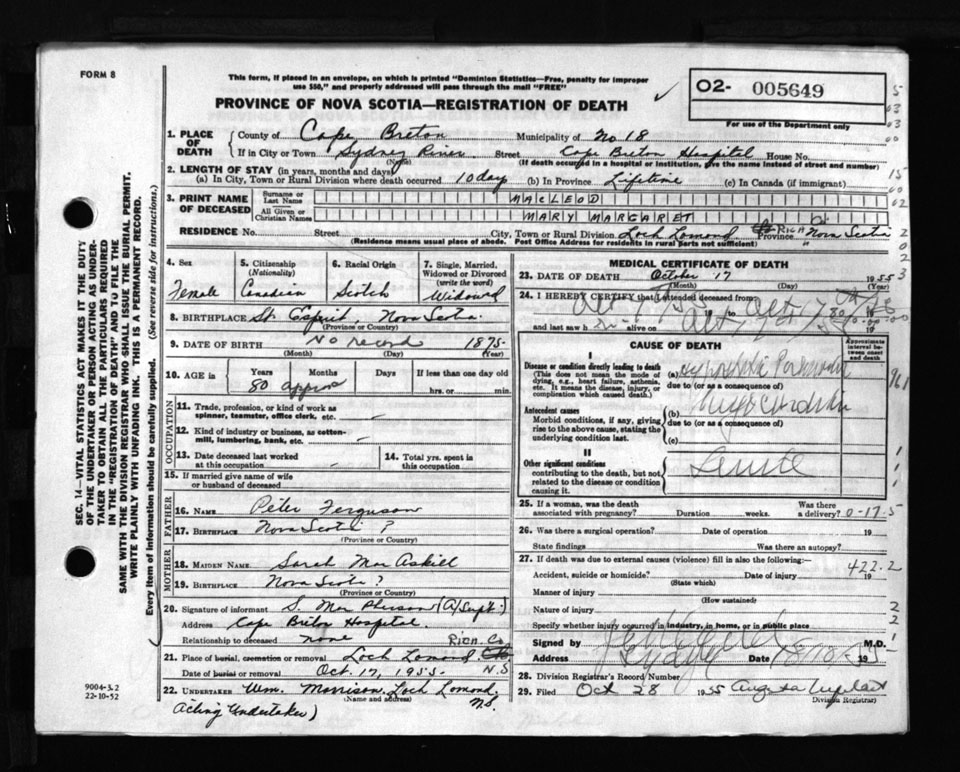 FORM 8
This form, if placed in an envelope, on which is printed "Dominion Statistics—Free, penalty for improper
use $50," and properly addressed will pass through the mail "FREE"
O2- 005649
For use of the Department only
PROVINCE OF NOVA SCOTIA—REGISTRATION OF DEATH
1. PLACE OF DEATH County of Cape Breton Municipality of No 18
If in City or Town Sydney River Street Cape Breton Hospital House No.
(Name) (If death occurred in a hospital or institution, give the name instead of street and number)
2. LENGTH OF STAY (in years, months and days)
(a) In City, Town or Rural Division where death occurred 10 day (b) In Province Lifetime (c) In Canada (if immigrant)
3. PRINT NAME OF DECEASED Surname or Last Name MACLEOD
All Given or Christian Names MARY MARGARET
RESIDENCE No. Street City, Town or Rural Division Loch Lomond Rich Co. Province Nova Scotia
(Residence means usual place of abode. Post Office Address for residents in rural parts not sufficient)
4. Sex 5. Citizenship (Nationality) 6. Racial Origin 7. Single, Married, Widowed or Divorced (write the word)
Female Canadian Scotch Widowed
8. BIRTHPLACE St. Esprit, Nova Scotia.
(Province or Country)
9. DATE OF BIRTH No record 1875
(Month) (Day) (Year)
10. AGE in Years Months Days If less than one day
80 approx hrs. or min.
OCCUPATION
11. Trade, profession, or kind of work as spinner, teamster, office clerk, etc. —
12. Kind of industry or business, as cotton-mill, lumbering, bank, etc. —
13. Date deceased last worked at this occupation - 14. Total yrs. spent in this occupation
15. If married give name of wife or husband of deceased
FATHER
16. NAME Peter Ferguson
17. BIRTHPLACE Nova Scotia ?
(Province or Country)
MOTHER
18. MAIDEN NAME Sarah Mac Askill
19. BIRTHPLACE Nova Scotia ?
(Province or Country)
20. Signature of informant S. Mac Pherson (A/Supt.)
Address Cape Breton Hospital.
Relationship to deceased none
21. Place of burial, cremation or removal Loch Lomond Rich. Co. N.S
Date of burial or removal Oct. 17, 1955
22. UNDERTAKER Wm. Morrison, Loch Lomond, N.S.
(Name and address)
Acting Undertaker)
MEDICAL CERTIFICATE OF DEATH
23. DATE OF DEATH October 17 1955
(Month) (Day)
24. I HEREBY CERTIFY that I attended deceased from
to
and last saw h alive on 19
CAUSE OF DEATH
Approximate interval between onset and death
I
Disease or condition directly leading to death (a)
(This does not mean the mode of dying, e.g., heart failure, asthenia, etc. It means the disease, injury, or complication which caused death.)
due to (or as a consequence of)
Antecedent causes (b)
Morbid conditions, if any, giving rise to the above cause, stating the underlying condition last.
due to (or as a consequence of)
(c)
II
Other significant conditions contributing to the death, but not related to the disease or condition causing it.
Senile
25. If a woman, was the death associated with pregnancy? Duration weeks. Was there a delivery? 0-17-5
26. Was there a surgical operation? Date of operation 19
State findings Was there an autopsy?
27. If death was due to external causes (violence) fill in also the following:
422.2
Accident, suicide or homicide? Date of injury 19
(State which)
Manner of injury
(How sustained)
Nature of injury
Specify whether injury occurred in industry, in home, or in public place
Signed by M.D.
Address Sydney Date 18/10/55 19
28. Division Registrar's Record Number
29. Filed Oct 28 1955 Augusta
Division Registrar)
SEC. 14—VITAL STATISTICS ACT MAKES IT THE DUTY
OF THE UNDERTAKER OR PERSON ACTING AS UNDER-
TAKER TO OBTAIN ALL THE PARTICULARS REQUIRED
IN THE "REGISTRATION OF DEATH" AND TO FILE THE
SAME WITH THE DIVISION REGISTRAR WHO SHALL ISSUE THE BURIAL PERMIT.
WRITE PLAINLY WITH UNFADING INK. THIS IS A PERMANENT RECORD.
Every item of information should be carefully supplied. (See reverse side for instructions.)
9004-3.2
22-10-52